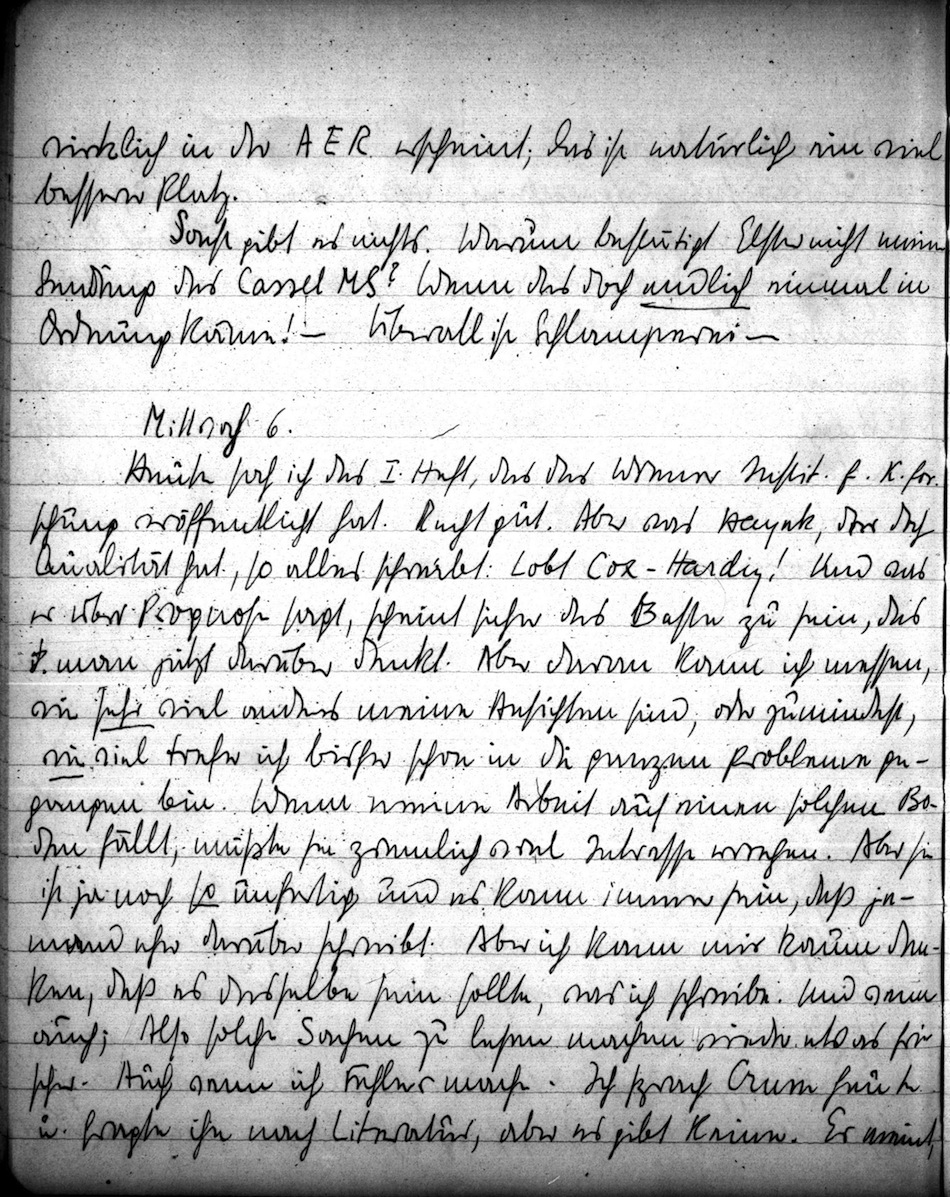 wirklich in der AER erscheint; das ist natürlich ein viel
besserer Platz.
Sonst gibt es nichts. Warum bestätigt Elster nicht meine
Sendung des Cassel MS? Wenn das doch endlich einmal in
Ordnung käme! — Überall ist Schlamperei —
Mittwoch 6.
Heute sah ich das I. Heft, das das Wiener Instit. f. K. for-
schung veröffentlicht hat. Recht gut. Aber was Hayek, der doch
Qualität hat, so alles schreibt: Lobt Cox-Hardy! Und was
er über Prognose sagt, scheint sicher das Beste zu sein, das
man jetzt darüber denkt. Aber daran kann ich messen,
wie sehr viel anders meine Ansichten sind, oder zumindest,
wie viel tiefer ich bisher schon in die ganzen Probleme ge-
gangen bin. Wenn meine Arbeit auf einen solchen Bo-
den fällt, müßte sie ziemlich viel Interesse erregen. Aber sie
ist ja noch so unfertig und es kann immer sein, daß je-
mand eher darüber schreibt. Aber ich kann mir kaum den-
ken, daß es dasselbe sein sollte, was ich schreibe. Und wenn
auch; Also solche Sachen zu lesen machen wieder etwas fri-
scher. Auch wenn ich Fehler mache. Ich sprach Crum heute
u. fragte ihn nach Literatur, aber es gibt keine. Er meint,